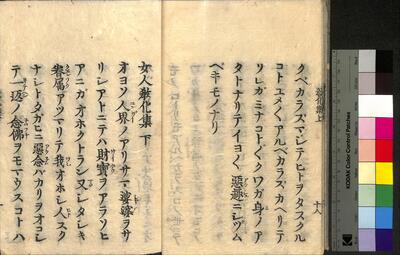 クベカラズマシテヒトヲタスクル
コトユメ〱アルベカラズカヘリテ
ソレガミナコト〲クワガ身ノア
タトナリテイヨ〱惡趣ニシヅム
ベキモノナリ
十八
女人教化集 下
オヨソ人界ノアリサマ娑婆ヲサ
リシアトニテハ財寶ヲアラソヒ
アニガオホクトラン又シタシキ
眷属アツマリテ我オホシ人スク
ナシトタガヒニ惡念バカリヲオコシ
テ一返ノ念佛ヲモマウスコトハ
KODAK Color Control Patches